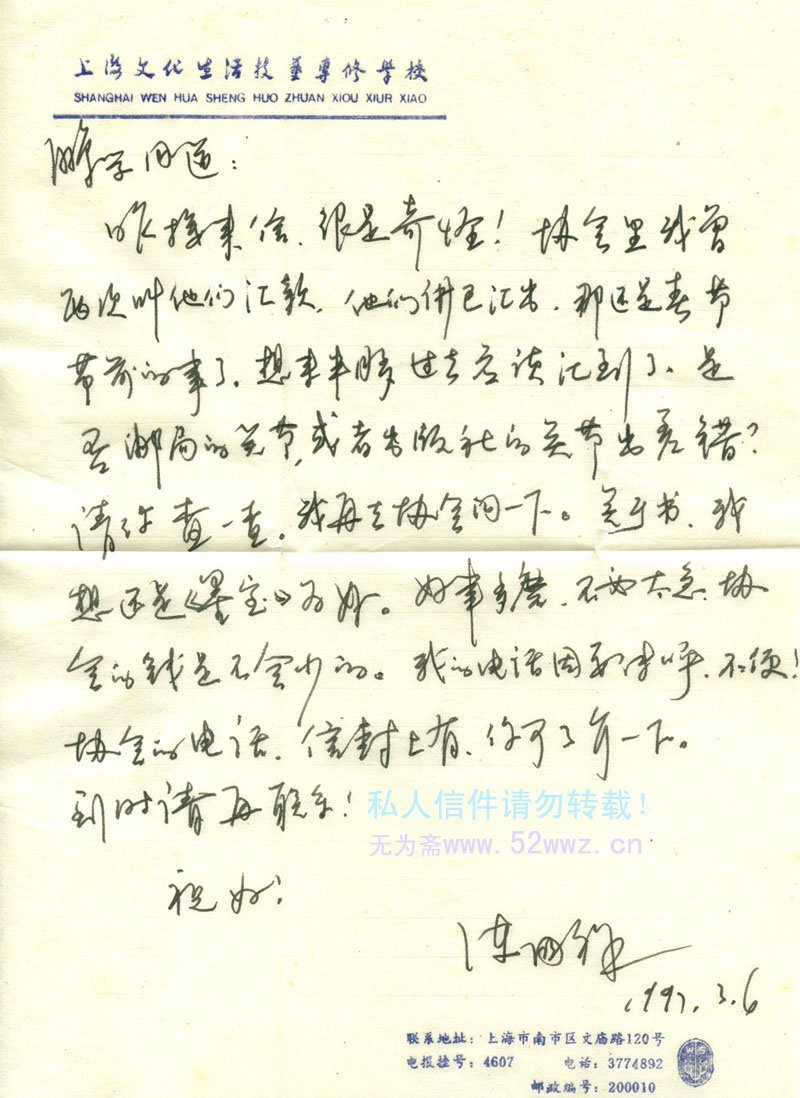 上海文化生活技艺专修学校
SHANGHAI WEN HUA SHENG HUO ZHUAN XIOU XIUR XIAO
学同道:
昨接来信、很是奇怪!协会里我曾
两次叫他们汇款,他们俱已汇出,那还是春节
节前的事了,想来半月过去应该汇到了、是
否邮局的关节,或者出版社的关节出差错?
请你查一查。我再去协会问一下。关于书,我
想还是《墨宝》为好。好事多磨,不必太急,协
会的钱是不会少的。我的电话因要传呼、不便!
协会的电话、信封上有,你可了解一下。
到时请再联系!
私人信件请勿转载!
无为斋www.52wwz.cn
祝好!
1997.3.6
联系地址:上海市南市区文庙路120号
电报挂号:4607 电话:3774892
邮政编号:200010